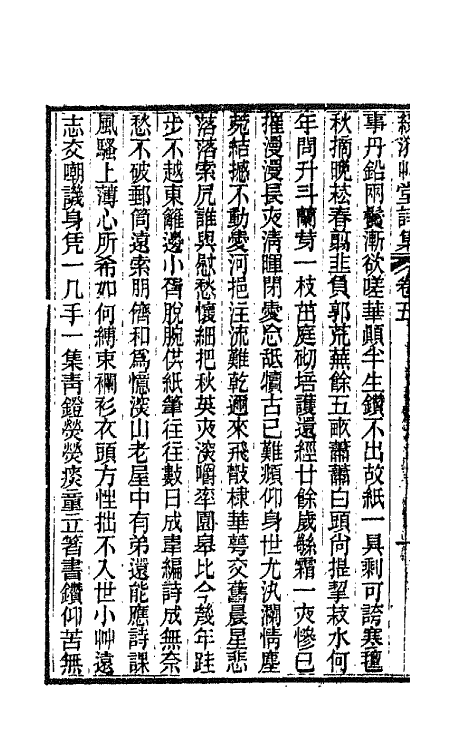 詩集 卷五
事丹鉛兩鬢漸欲嗟華顚半生鑽不出故紙一具剩可誇寒氊
秋摘晚菘春翦韭負郭荒蕪餘五畝蕭蕭白頭尚提挈菽水何
年問升斗蘭芽一枝茁庭砌培護還經廿餘歲繁霜一夾慘已
摧漫漫長夾淸暉閉愛惢舐犢古已難頫仰身世尤汍瀾情塵
菀結撼不動愛河挹注流難乾邇來飛散棣華萼交舊晨星悲
落落索凥誰與慰愁懷細把秋英夾深嚼李園皋比今幾年跬
步不越東籬邊小胥脫腕供紙筆往往數日成韋編詩成無奈
愁不破郵筒遠索朋儕和爲憶淡山老屋中有弟還能應詩課
風騷上薄心所希如何縛束襴衫衣頭方性拙不入世小艸遠
志交嘲譏身凭一几手一集靑鐙熒熒痰童立著書鑽仰苦無